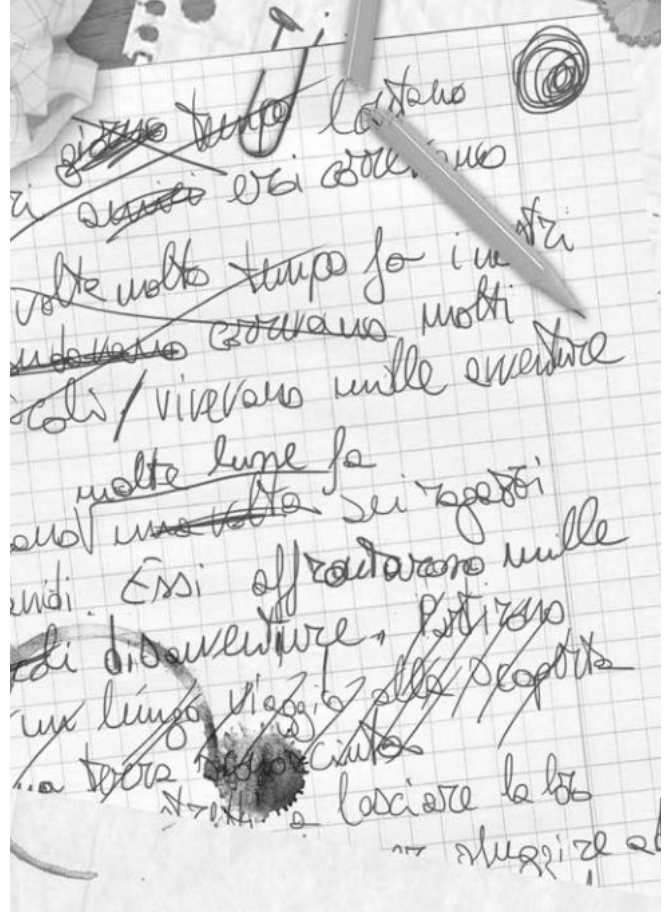 giorno tempo lontano
amici eroi correvano
volte molto tempo fa in
andavano correvano molti
vivevano mille avventure
molte lune fa
una volta sei ragazzi
Essi affrontarono mille
di disavventure. Partirono
un lungo viaggio alla scoperta
terra sconosciuta
a lasciare la loro
sfuggire al